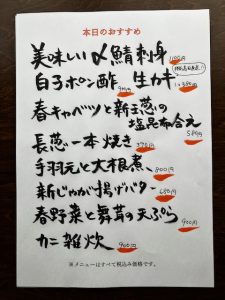 本日のおすすめ
美味しい〆鯖刺身
白子ポン酢 生カキ
春キャベツと新玉葱の
塩昆布合え
580円
長葱一本焼き
手羽元と大根煮
800円
新じゃが揚げバター
680円
春野菜と舞茸の天ぷら
900円
カニ雑炊
900円
※メニューはすべて税込み価格です。